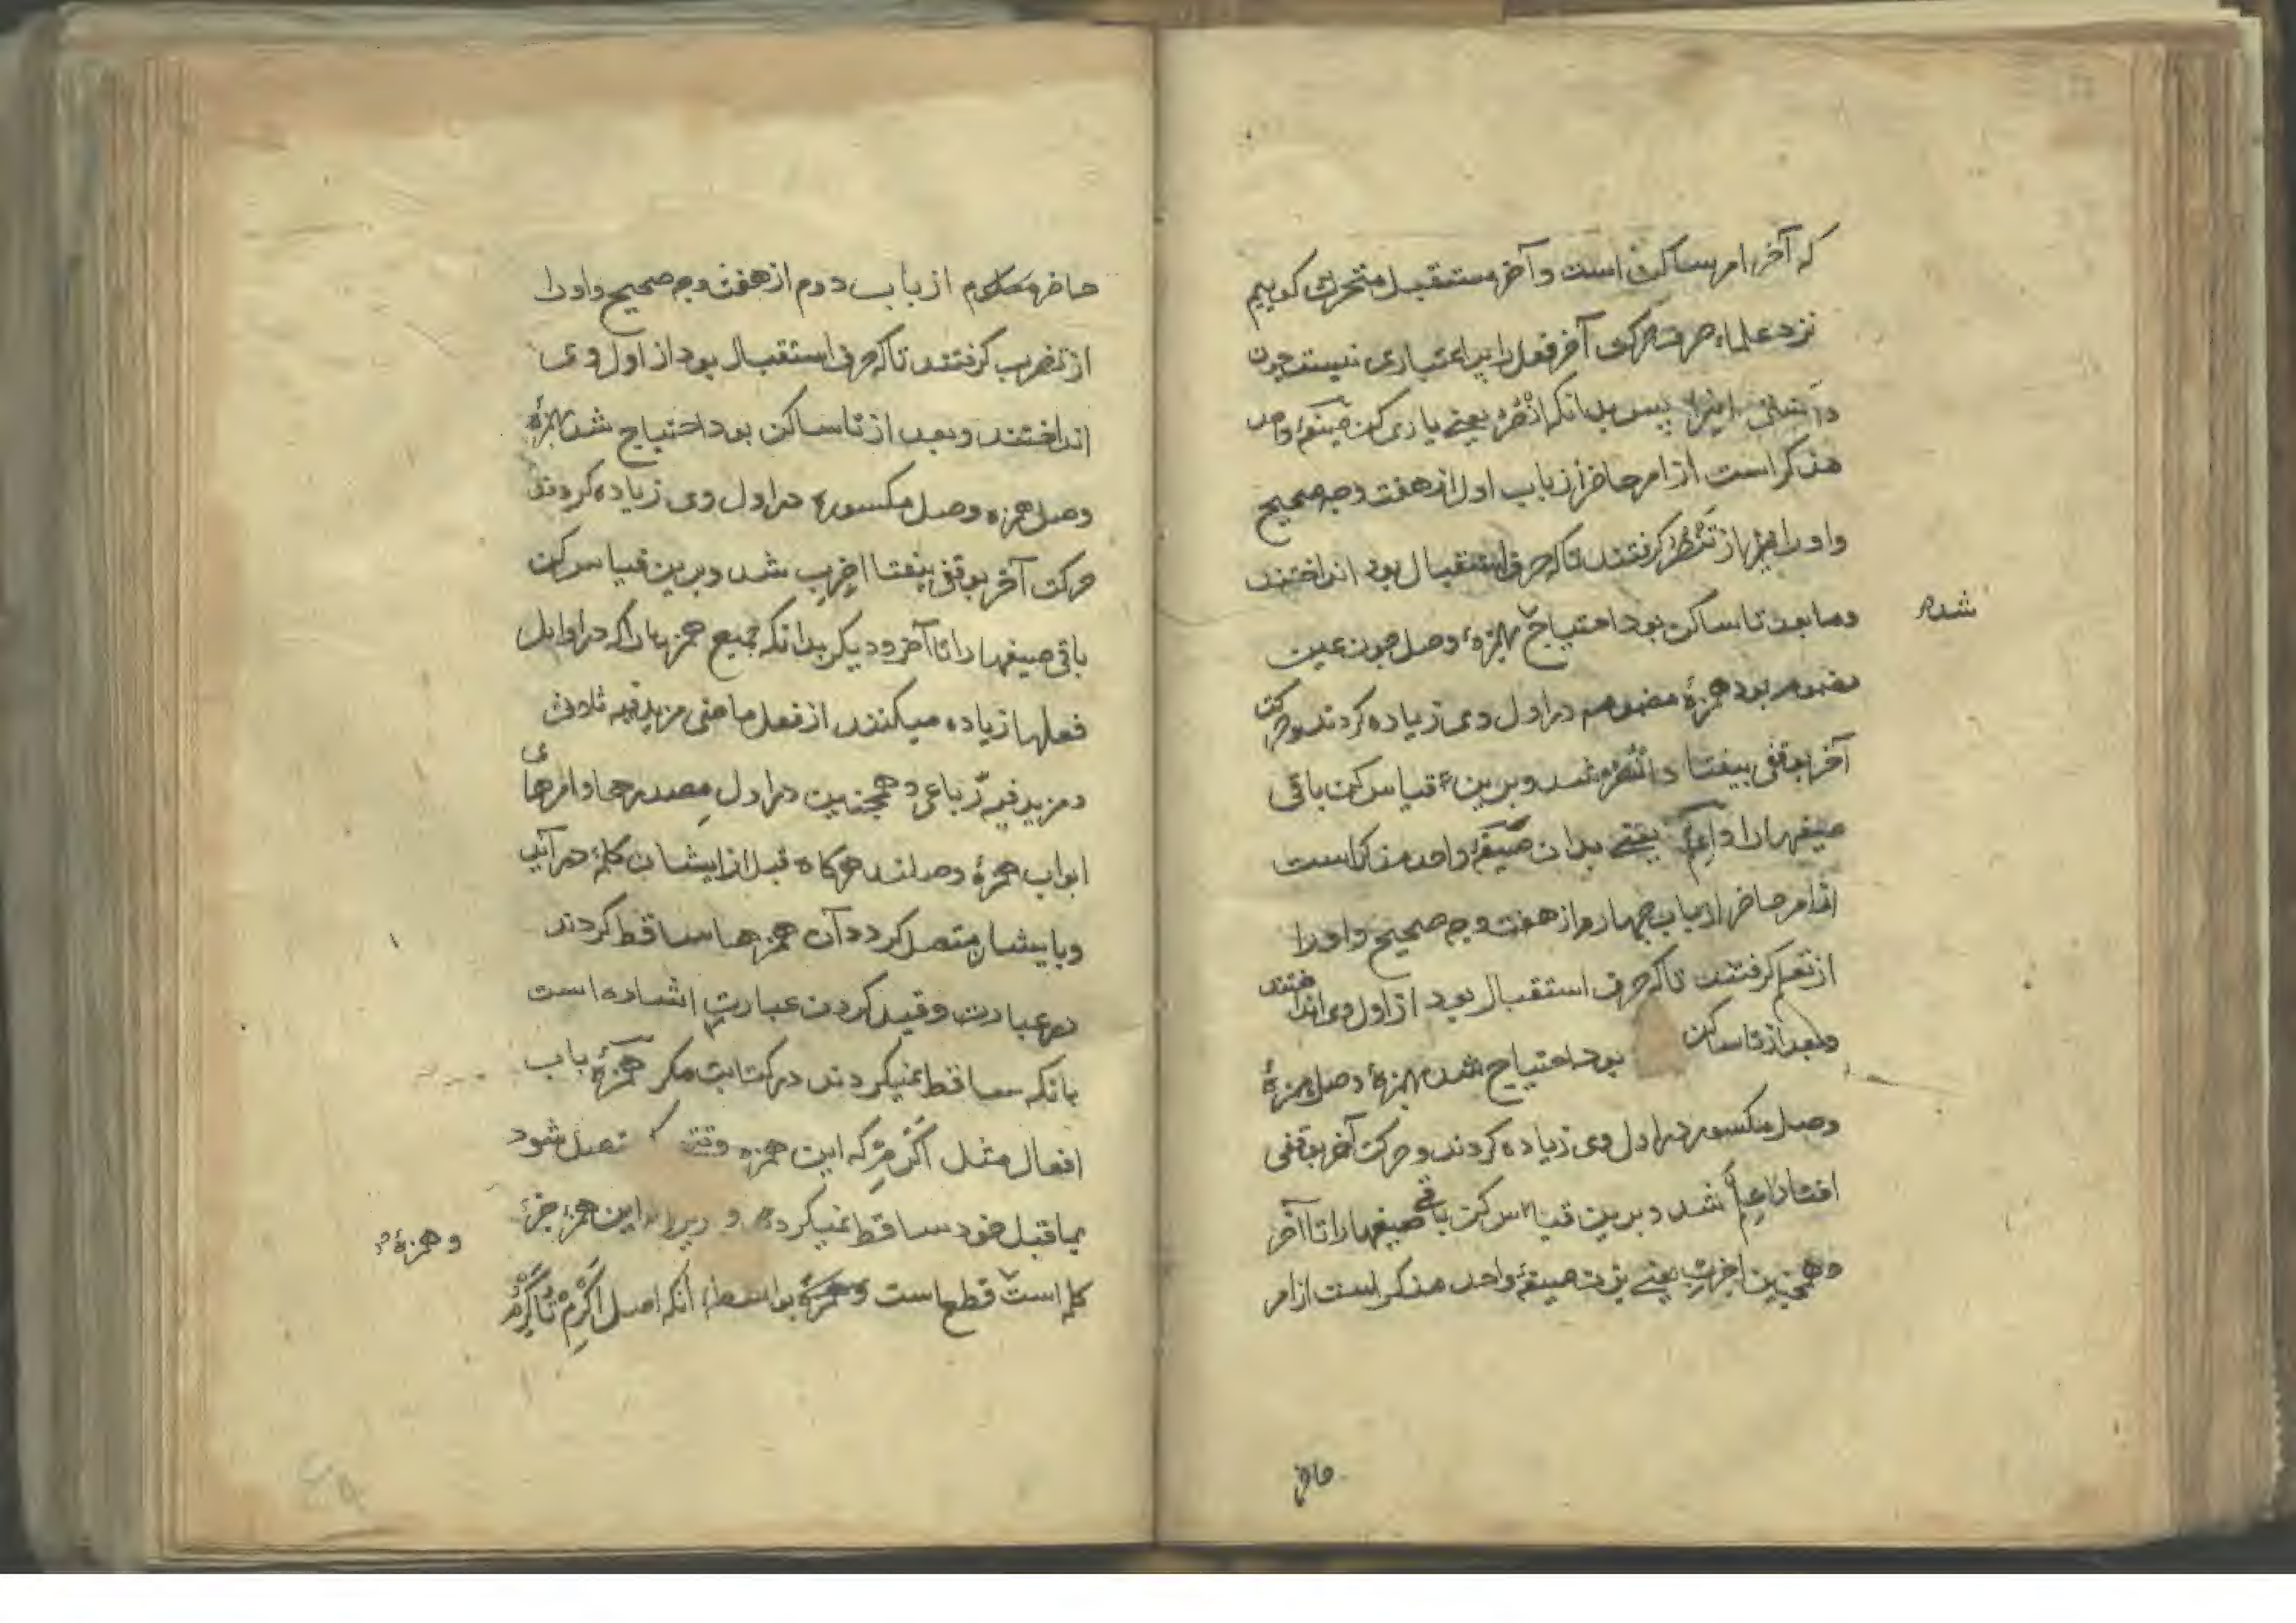 که آخر امر ساکن است و آخر مستقبل متحرک کوییم
نزد علماء صرف حرکت آخر فعل را پر اعتباری نیست چون
دانستی اینرا پس بدانکه اُنْصُرْ یعنی یاری کن صیغهٔ واحد
مذکر است از امر حاضر از باب اول از هفت وجه صحیح
و اورا از تَنْصُرُ کرفتند تا که حرف استقبال بود انداختند
وما بعد تا ساکن بود احتیاج بهمزهٔ وصل چون عین
شده
مضموم بود همزهٔ مضموم در اول وی زیاده کردند و حرکت
آخر بوقفی بیفتا د اُنْصُرْ شد و برین قیاس کن باقی
صیغهارا و اِعْلَمْ یعنی بدان صیغهٔ واحد مذکر است
از امر حاضر از باب چهارم از هفت وجه صحیح و اورا
از تعلم کرفتند تا که حرف استقبال بود از اول وی انداختند
و بعد از تا ساکن بود احتیاج شد بهمزهٔ وصل همزهٔ
وصل مکسور در اول وی زیاده کردند و حرکت آخر بوقفی
افتاد اعلم شد و برین قیاس کن باقی صیغهارا تا آخر
و همچنین اِضْرِبْ یعنی بزن صیغهٔ واحد مذکر است از امر
حاضر
حاضر معلوم از باب دوم از هفت وجه صحیح و اورا
از تضرب کرفتند تا که حرف استقبال بود از اول وی
انداختند و بعد از تا ساکن بود احتیاج شد بهمزهٔ
وصل همزه وصل مکسوره در اول وی زیاده کردند
حرکت آخر بوقفی بیفتا اضرب شد و برین قیاس کن
باقی صیغهارا تا آخر و دیکر بدانکه جمیع همزهارا که در اوایل
فعلها زیاده میکنند از فعل ماضی مزید فیه ثلاثی
و مزید فیه رباعی و همچنین در اول مصدرها و امرهای
ابواب همزهٔ وصلند هرکاه قبل از ایشان کلمهٔ در آید
و بایشان متصل کردد آن همزها ساقط کردند
در عبارت و قید کردن عبارت اشاره است
بانکه ساقط نمیکردند در کتابت مکر همزهٔ باب
افعال مثل اَکْرِمْ که این همزه وقتی تصل شود
بماقبل خود ساقط نمیکردد و زیرا این همزه جزء
کلمه است قطع است و همزهٔ بواسطه انکه اصل اَکْرِمْ تُاَکْرِمُ
و همزهٔ